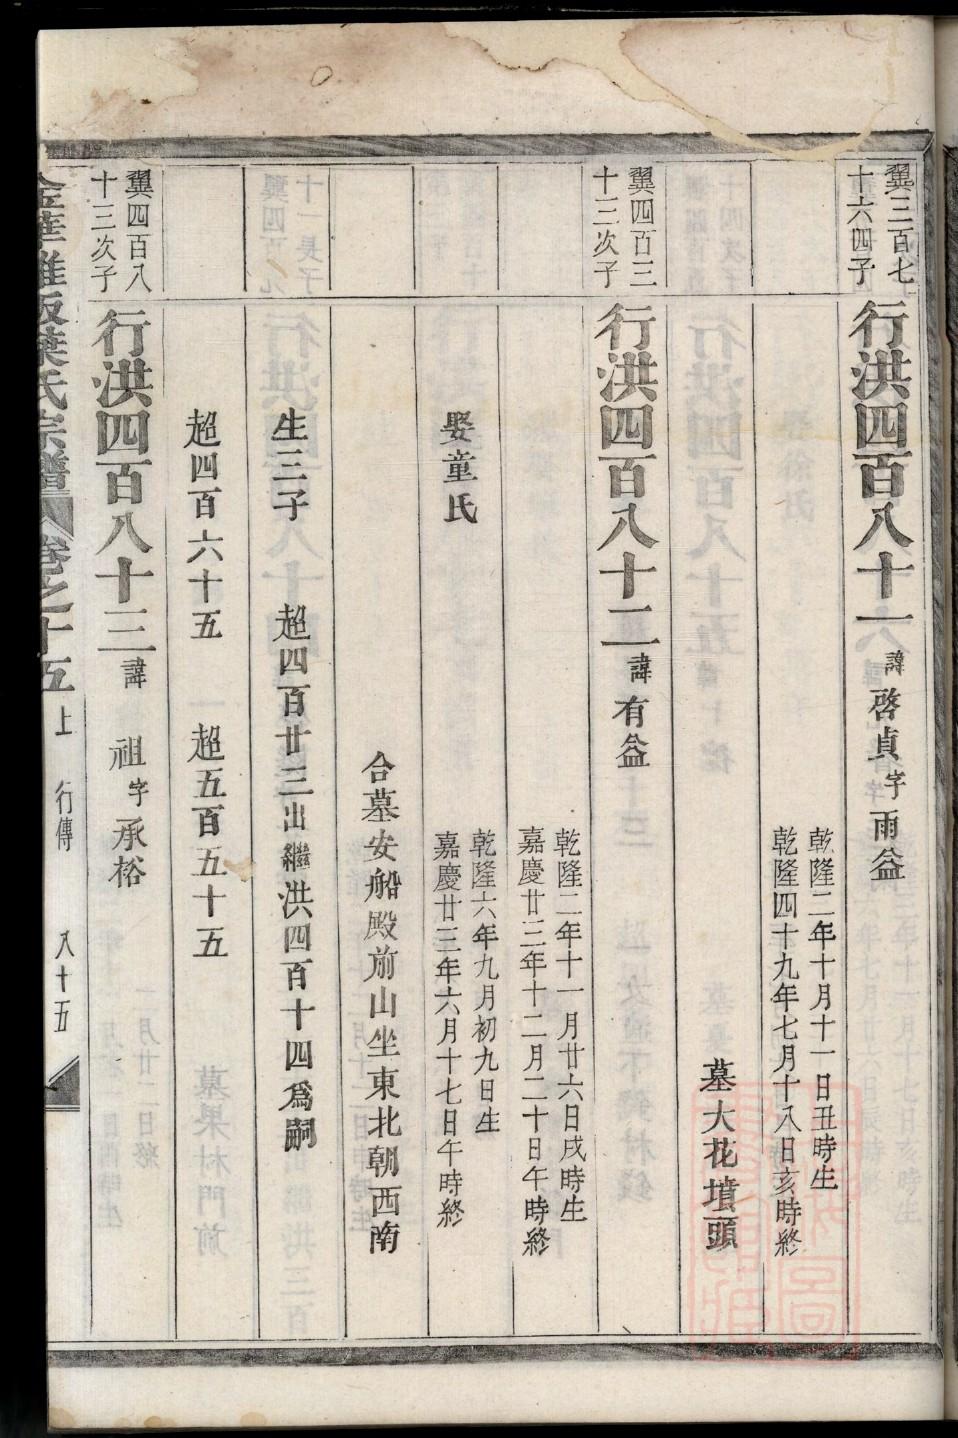 翼三百七
十六四子
行洪四百八十一
諱啓貞字雨益
乾隆二年十月十一日丑時生
乾隆四十九年七月十八日亥時終
墓大花墳頭
翼四百三
十三次子
行洪四百八十二
諱有益
乾隆二年十一月廿六日戌時生
嘉慶廿三年十二月二十日午時終
娶童氏
乾隆六年九月初九日生
嘉慶廿三年六月十七日午時終
合墓安船殿前山坐東北朝西南
生三子
超四百廿三出繼洪四百十四為嗣
超四百六十五
超五百五十五
翼四百八
十三次子
行洪四百八十三
諱祖字承裕
金華雅畈葉氏宗譜
卷之十五上
行傳
八十五